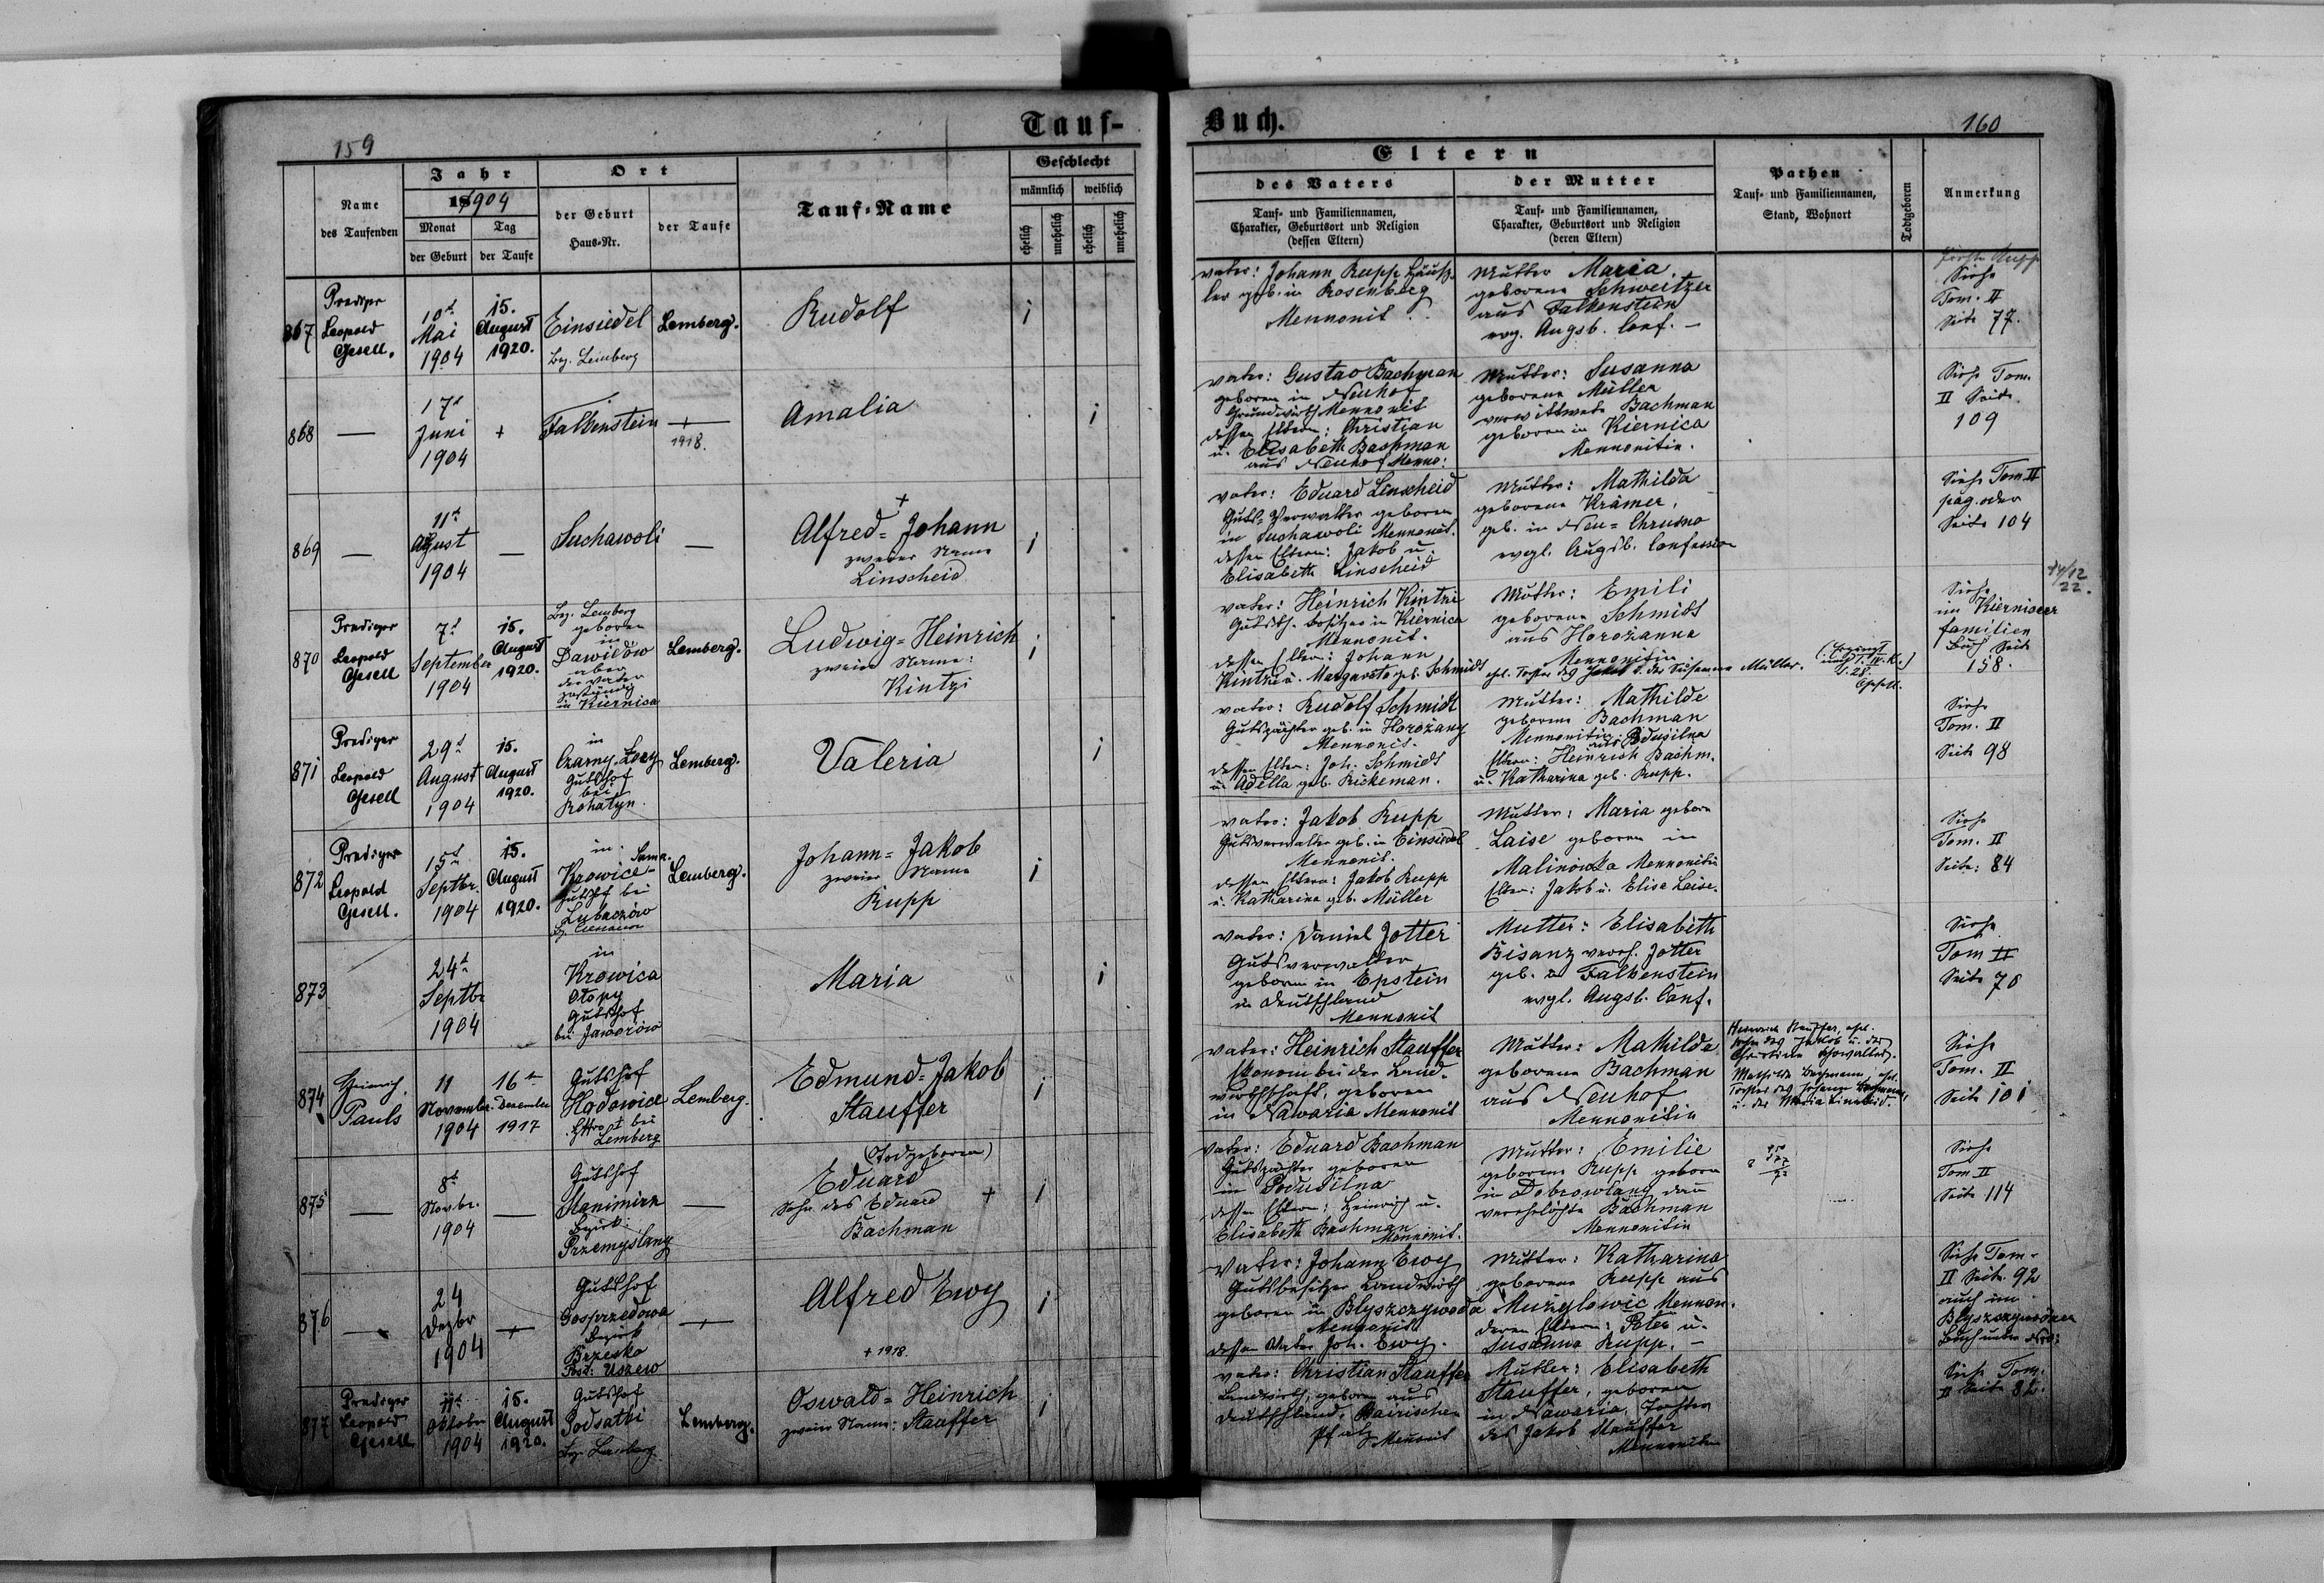 Tauf-
159
Name des Taufenden
Jahr
1904
Monat
Tag
der Geburt
der Taufe
Ort
der Geburt
Haus-Nr.
der Taufe
Tauf-Name
Geschlecht
männlich
weiblich
ehelich
unehelich
ehelich
unehelich
867
Prediger
Leopold
Gesell.
10t
Mai
1904
15.
August
1920.
Einsiedel
Bez. Lemberg
Lemberg.
Rudolf
1
868
—
17t
Juni
1904
+
Falkenstein
+
1918.
Amalia
1
869
—
11t
August
1904
—
Suchawoli
—
+
Alfred=Johann
zweier Name
Linscheid
1
870
Prediger
Leopold
Gesell
7t
September
1904
15.
August
1920.
Bez. Lemberg
geboren
in
Dawidow
aber
der Vater
zuständig
in Kiernica
Lemberg.
Ludwig=Heinrich
zweier Name:
Kintzi
1
871
Prediger
Leopold
Gesell
29t
August
1904
15.
August
1920.
in
Czarny-Lozy
Gutshof
bei
Rohatyn.
Lemberg.
Valeria
1
872
Prediger
Leopold
Gesell.
15t
Septbr.
1904
15.
August
1920.
in
Krowica-Sama.
Gutshof bei
Lubaczów
Lemberg.
Johann=Jakob
zweier Name
Rupp
1
873
24t
Septbr
1904
in
Krowica
Gutshof
bei Jaworów
Maria
1
874
Heinrich
Pauls
11
November
1904
16ten
Dezember
1917
Gutshof
Hodowica
bei
Lemberg
Lemberg.
Edmund=Jakob
Stauffer
1
875
—
8t
Novbr.
1904
—
Gutshof
Bezirk
Przemyslany
—
(Todgeboren)
Eduard
Sohn des Eduard +
Bachman
1
876
—
24
Dezbr
1904
+
Gutshof
Gosprzedowa
Bezirk
Brzesko
Post: Uszew
+
Alfred Ewy
+ 1918.
1
877
Prediger
Leopold
Gesell
11t
Oktober
1904
15.
August
1920.
Gutshof
Podsatki
Bez. Lemberg
Lemberg.
Oswald=Heinrich
zweier Name: Stauffer
1
Buch.
160
Eltern
des Vaters
Tauf- und Familiennamen,
Charakter, Geburtsort und Religion
(dessen Eltern)
der Mutter
Tauf- und Familiennamen,
Charakter, Geburtsort und Religion
(deren Eltern)
Pathen
Tauf- und Familiennamen,
Stand, Wohnort
Todtgeboren
Anmerkung
Vater: Johann Rupp Häusler
geb. in Rosenberg
Mennonit
Mutter Maria
geborene Schweitzer
aus Falkenstein
evg. Augsb. Conf. —
Siehe
Tom. II
Seite 77.
Vater: Gustav Bachman
geboren in Neuhof
Grundwirth Mennonit
dessen Eltern: Christian
u. Elisabeth Bachman
aus Neuhof Menno:
Mutter: Susanna
geborene Müller
verwittwete Bachman
geboren in Kiernica
Mennonitin.
Siehe Tom.
II Seite
109
Vater: Eduard Linscheid
Guts-Verwalter geboren
in Suchawoli Mennonit.
dessen Eltern: Jakob u.
Elisabeth Linscheid
Mutter: Mathilda
geborene Krämer,
geb. in Neu-Chrusno
evgl. Augsb. Confession
Siehe Tom II
pag. oder
Seite 104
Vater: Heinrich Kintzi
Gutsth. besitzer in Kiernica
Mennonit.
dessen Eltern: Johann
Kintzi u. Margareta geb. Schmidt
Mutter: Emili
geborene Schmidt
aus Horozanna
Mennonitin
ehel. Tochter des Jakob u. der Susanna Müller.
Gesell.
14/12
22.
Siehe
im Kiernicer
familien
Buch Seite
158.
Vater: Rudolf Schmidt
Gutspächter geb. in Horożany
Mennonit.
dessen Eltern: Joh. Schmidt
u. Adella geb. Rickeman.
Mutter: Mathilde
geborene Bachman
Mennonitin aus Podusilna
Eltern: Heinrich Bachm.
u. Katharina geb. Rupp.
Siehe
Tom. II
Seite 98
Vater: Jakob Rupp
Gutsverwalter geb. in Einsiedel
Mennonit.
dessen Eltern: Jakob Rupp
u. Katharina geb. Müller
Mutter: Maria geborn
Laise geboren in
Malinowka Mennonitin
Eltern: Jakob u. Elise Laise.
Siehe
Tom. II
Seite: 84
Vater: Daniel Jotter
Gutsverwalter
geboren in Epstein
in Deutschland
Mennonit
Mutter: Elisabeth
Bisanz verh. Jotter
geb. in Falkenstein
evgl. Augsb. Conf.
Siehe
Tom II
Seite 78
Vater: Heinrich Stauffer
Ökonom bei der Land-
wirthschaft, geboren
in Nawaria Mennonit
Mutter: Mathilde
geborene Bachman
aus Neuhof
Mennonitin
Heinrich Stauffer, ehel.
Sohn des Jakob u. der
Christine Schowalter.
Mathilde Bachmann, ehel.
Tochter des Johann Bachmann,
u. der Maria Linscheid.
Siehe
Tom. II
Seite 101
Vater: Eduard Bachman
Gutspächter geboren
in Podusilna
dessen Eltern: Heinrich u.
Elisabeth Bachman
Mennonit.
Mutter: Emilie
geborene Rupp geborn
in Dobrowlany dan
verehelichte Bachman
Mennonitin
Siehe
Tom II
Seite 114
Vater: Johann Ewy
Gutsbesitzer Landwirth
geboren in Blyszczywoda
Mennonit
dessen Vater Joh. Ewy.
Mutter: Katharina
geborene Rupp aus
Mużyłowic Mennon.
deren Eltern: Peter u.
Susanna Rupp. —
Siehe Tom-
II Seite 92
auch im
Buch unter Nro:
Vater: Christian Stauffer
Landwirth, geboren aus
Deutschland, Bairischer
Pfalz Mennonit
Mutter: Elisabeth
Stauffer, geboren
in Nawaria, Tochter
des Jakob Stauffer
Mennonitin
Siehe Tom.
II Seite 82.